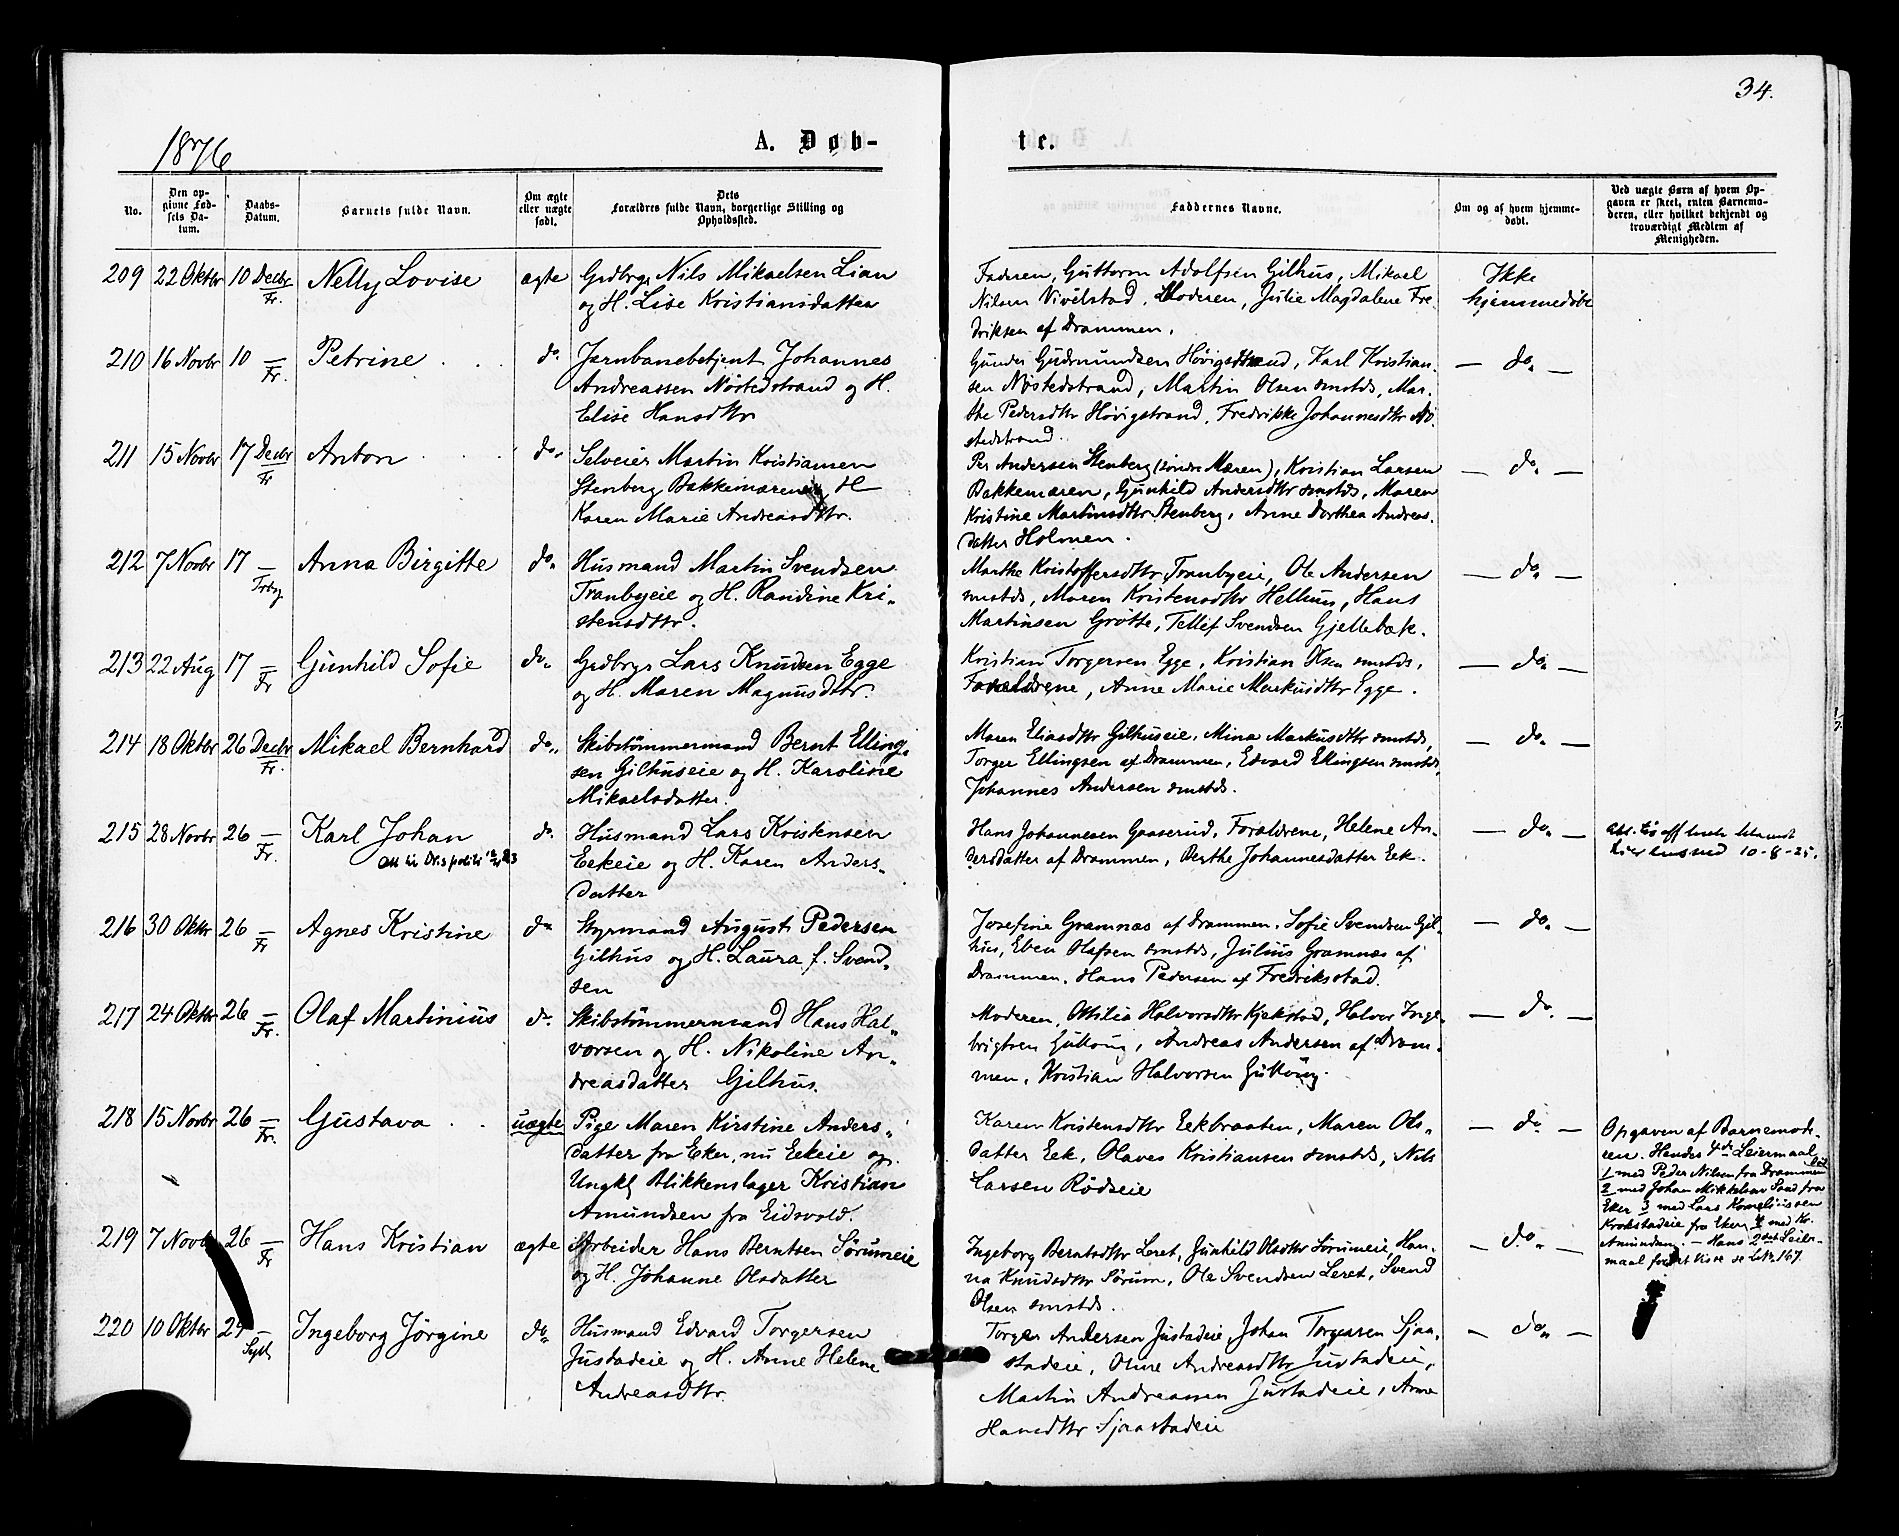 34.
1876
A. Døb-
te.
No.
Den op-
givne Fød-
sels Da-
tum.
Daabs-
Datum.
Barnets fulde Navn.
Om ægte
eller uægte
født.
Dets
Forældres fulde Navn, borgerlige Stilling og
Opholdssted.
Faddernes Navne.
Om og af hvem hjemme-
døbt.
Ved uægte Børn af hvem Op-
gaven er skeet, enten Barnemo-
deren, eller hvilket bekjendt og
troværdigt Medlem af
Menigheden.
209 22 Oktbr 10 Decbr Fr. Nelly Lovise ægte
Grdbrgr Nils Mikaelsen Lian
og H. Lise Kristiansdatter
Faderen, Guttorm Adolfsen Gilhus, Mikael
Nilsen Vivelstad, Moderen, Julie Magdalene Fre-
driksen af Drammen.
Ikke
hjemmedøbt
210 16 Novbr 10 — Fr. Petrine . . . do.
Jernbanebetjent Johannes
Andreassen Nøstedstrand og H.
Elise Hansdttr
Gunder Gudmundsen Høvigstrand, Karl Kristian-
sen Nøstedstrand, Martin Olsen smstds, Mar-
the Pedersdttr Høvigstrand, Fredrikke Johannesdttr Nø-
stedstrand.
— do. —
211 15 Novbr 17 Decbr Fr Anton . . . do.
Selveier Martin Kristiansen
Stenberg Bakkemæren og H
Karen Marie Andreasdttr.
Per Andersen Stenberg (søndre Mæren), Kristian Larsen
Bakkemæren, Gunhild Andersdttr smstds, Maren
Kristine Martinsdttr Stenberg, Anne Dorthea Andreas-
datter Holmen.
— do. —
212 7 Novbr 17 — Trbg Anna Birgitte do.
Husmand Martin Svendsen
Tranbyeie og H. Randine Kri-
stensdttr.
Marthe Kristoffersdttr Tranbyeie, Ole Andersen
smstds, Maren Kristensdttr Hellum, Hans
Martinsen Grøtte, Tellef Svendsen Gjellebæk.
— do. —
213 22 Aug 17 — Fr Gunhild Sofie do.
Grdbrgr Lars Knudsen Egge
og H. Maren Magnusdttr.
Kristian Torgersen Egge, Kristian Olsen smstds,
Forældrene, Anne Marie Markusdttr Egge.
— do. —
214 18 Oktbr 26 Decbr Fr. Mikael Bernhard do.
Skibstømmermand Bernt Elling-
sen Gilhuseie og H. Karoline
Mikaelsdatter.
Maren Eliasdttr Gilhuseie, Mina Markusdttr smstds,
Torger Ellingsen af Drammen, Edvard Ellingsen smstds,
Johannes Andersen smstds.
— do. —
215 28 Novbr 26 — Fr. Karl Johan do.
Husmand Lars Kristensen
Eekeie og H. Karen Anders-
datter
Hans Johannesen Gaaserud, Forældrene, Helene An-
dersdatter af Drammen, Berthe Johannesdatter Eek.
— do. —
10-8-25.
216 30 Oktbr 26 — Fr Agnes Kristine do
Styrmand August Pedersen
Gilhus og H. Laura f. Svend-
sen
Josefine Gramnæs af Drammen, Sofie Svendsen Gil-
hus, Eben Olafsen smstds, Julius Gramnæs af
Drammen, Hans Pedersen af Fredriksstad.
— do. —
217 24 Oktbr 26 — Fr. Olaf Martinius do.
Skibstømmermand Hans Hal-
vorsen og H. Nikoline An-
dreasdatter Gilhus.
Moderen, Ottilia Halvorsdttr Kjekstad, Halvor Inge-
brigtsen Gulloug, Andreas Andersen af Dram-
men, Kristian Halvorsen Gulloug.
— do. —
218 15 Novbr 26 — Fr. Gustava . . uægte
Pige Maren Kirstine Anders-
datter fra Eker, nu Eekeie og
Ungkl Blikkenslager Kristian
Amundsen fra Eidsvold.
Karen Kristensdttr Eekbraaten, Maren Ols-
datter Eek, Olaves Kristiansen smstds, Nils
Larsen Rødseie
— do. —
Opgaven af Barnemode-
ren. Hendes 4de Leiermaal
1 med Peder Nilsen fra Drammen
2 med Johan Mikkelsen Sand fra
Eker 3 med Lars Korneliussen
Krokstadeie fra Eker 4 med Kr.
Amundsen. — Hans 2det Leier-
maal
219 7 Novbr 26 — Fr Hans Kristian ægte
Arbeider Hans Berntsen Sørumeie
og H. Johanne Olsdatter
Ingeborg Berntsdttr Leret, Gunhild Olsdttr Sørumeie, Han-
na Knudsdttr Sørum, Ole Svendsen Leret, Svend
Olsen smstds.
— do. —
220 10 Oktbr 29 — Sylt Ingeborg Jørgine do.
Husmand Edvard Torgersen
Justadeie og H. Anne Helene
Andreasdttr.
Torger Andersen Justadeie, Johan Torgersen Sjaa-
stadeie, Oline Andreasdttr Justadeie,
Martin Andreassen Justadeie, Anne
Hansdttr Sjaastadeie
— do. —